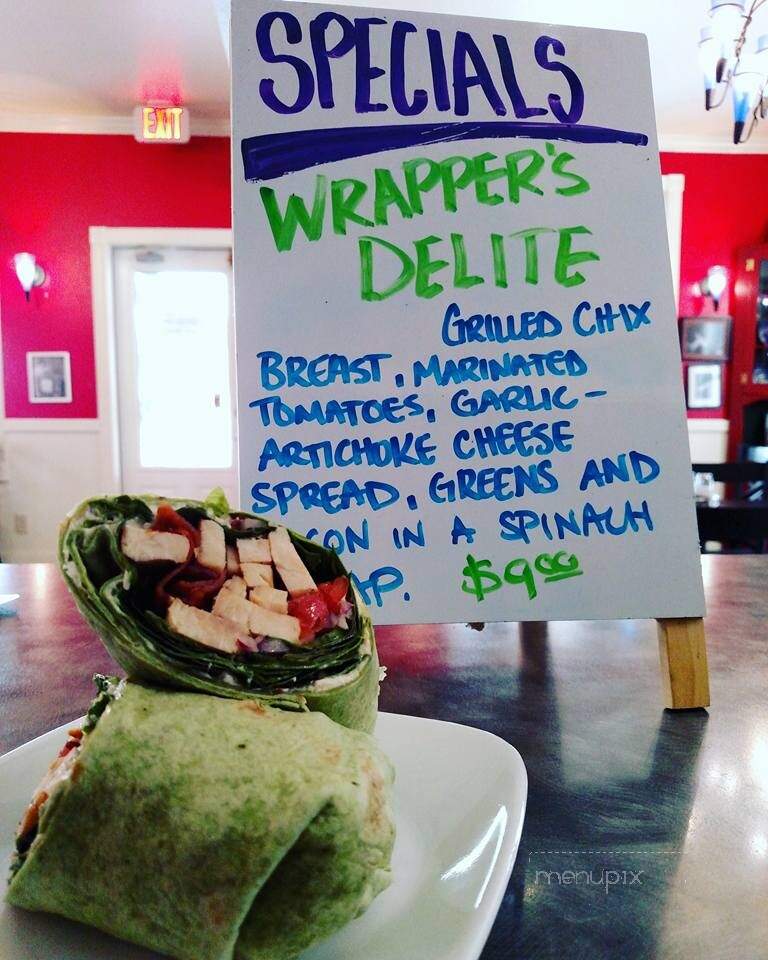 EXIT
SPECIALS
WRAPPER'S
DELITE
GRILLED CHIX
BREAST, MARINATED
TOMATOES, GARLIC-
ARTICHOKE CHEESE
SPREAD, GREENS AND
CON IN A SPINACH
AP. $9.00
menupix